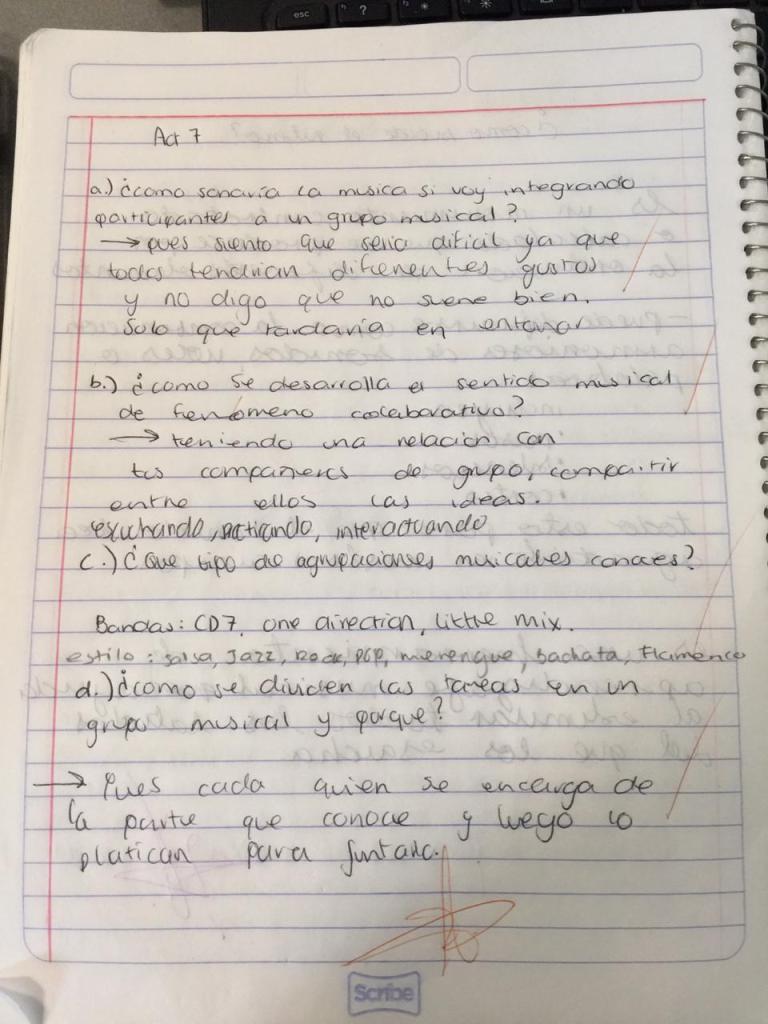 Act 7
a.) ¿como sonaría la musica si voy integrando
participantes a un grupo musical?
→ pues siento que seria dificil ya que
todos tendrian diferentes gustos
y no digo que no suene bien.
Solo que tardaría en entonar
b.) ¿como se desarrolla el sentido musical
de fenomeno colaborativo?
→ teniendo una relacion con
tus compañeros de grupo, compartir
entre ellos las ideas.
escuchando, practicando, interactuando
c.) ¿Que tipo de agrupaciones musicales conoces?
Bandas: CD7, one direction, little mix.
estilo: salsa, Jazz, Rock, POP, merengue, bachata, Flamenco
d.) ¿como se dividien las tareas en un
grupo musical y porque?
→ Pues cada quien se encarga de
la parte que conoce y luego lo
platican para juntarlo.
Scribe
esc
?